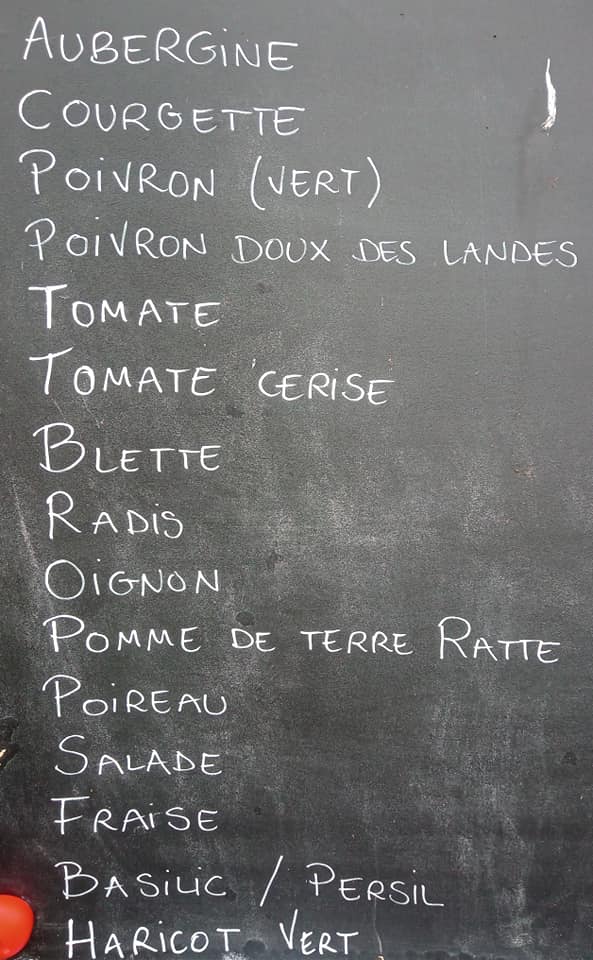 AUBERGINE
COURGETTE
POIVRON (VERT)
POIVRON DOUX DES LANDES
TOMATE
TOMATE CERISE
BLETTE
RADIS
OIGNON
POMME DE TERRE RATTE
POIREAU
SALADE
FRAISE
BASILIC / PERSIL
HARICOT VERT